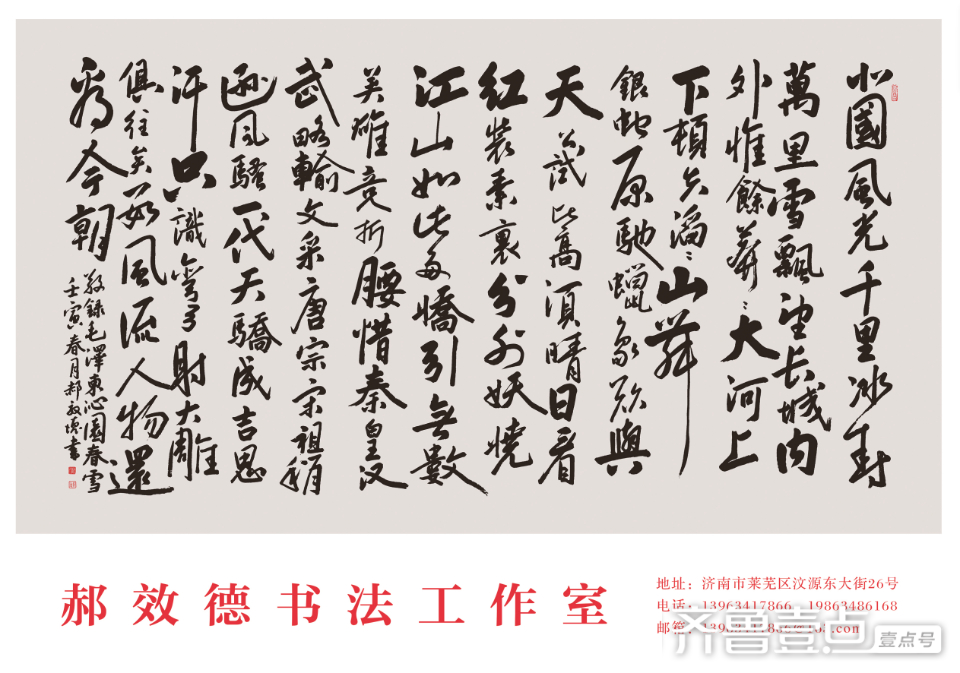 北國風光千里冰封
萬里雪飄望长城内
外惟餘莽〻大河上
下頓失滔〻山舞
銀蛇原馳蠟象欲與
天公試比高須晴日看
红装素裹分外妖娆
江山如此多嬌引無數
英雄竞折腰惜秦皇汉
武略輸文采唐宗宋祖稍
逊風騷一代天驕成吉思
汗只識彎弓射大雕
俱往矣数風流人物還
看今朝
敬錄毛澤東沁園春雪
壬寅春月郝效德書
郝效德书法工作室
地址：济南市莱芜区汶源东大街26号
电话：13963417866 19863486168
邮箱：
齐鲁壹点 壹点号